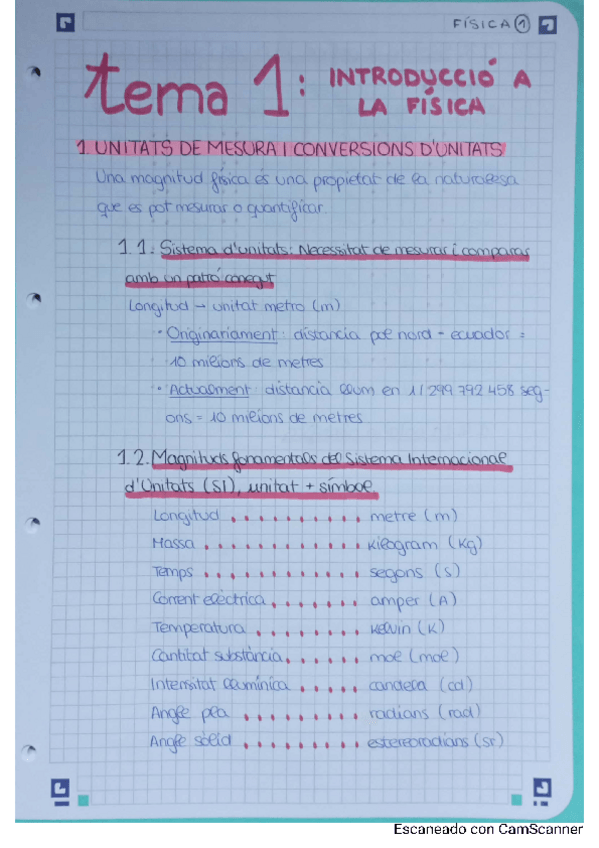 FÍSICA 1
tema 1: INTRODUCCIÓ A
LA FÍSICA
1 UNITATS DE MESURA I CONVERSIONS D'UNITATS
Una magnitud física és una propietat de la naturalesa
que es pot mesurar o quantificar
1.1. Sistema d'unitats: Necessitat de mesurar i comparar
amb un patró conegut
Longitud → unitat metro (m)
· Originariament: distancia pol nord - ecuador =
10 milions de metres
· Actualment: distancia llum en 1/299 792 458 seg-
ons = 10 milions de metres
1.2. Magnituds fonamentals del Sistema Internacional
d'Unitats (SI), unitat + símbol
Longitud .......... metre (m)
Massa ............ kilogram (Kg)
Temps ............ segons (s)
Corrent elèctrica ....... amper (A)
Temperatura ........ kelvin (K)
Cantitat substància ...... mol (mol)
Intensitat llumínica ..... candela (cd)
Angle pla ......... radians (rad)
Angle sòlid ......... estereoradians (sr)
Escaneado con CamScanner